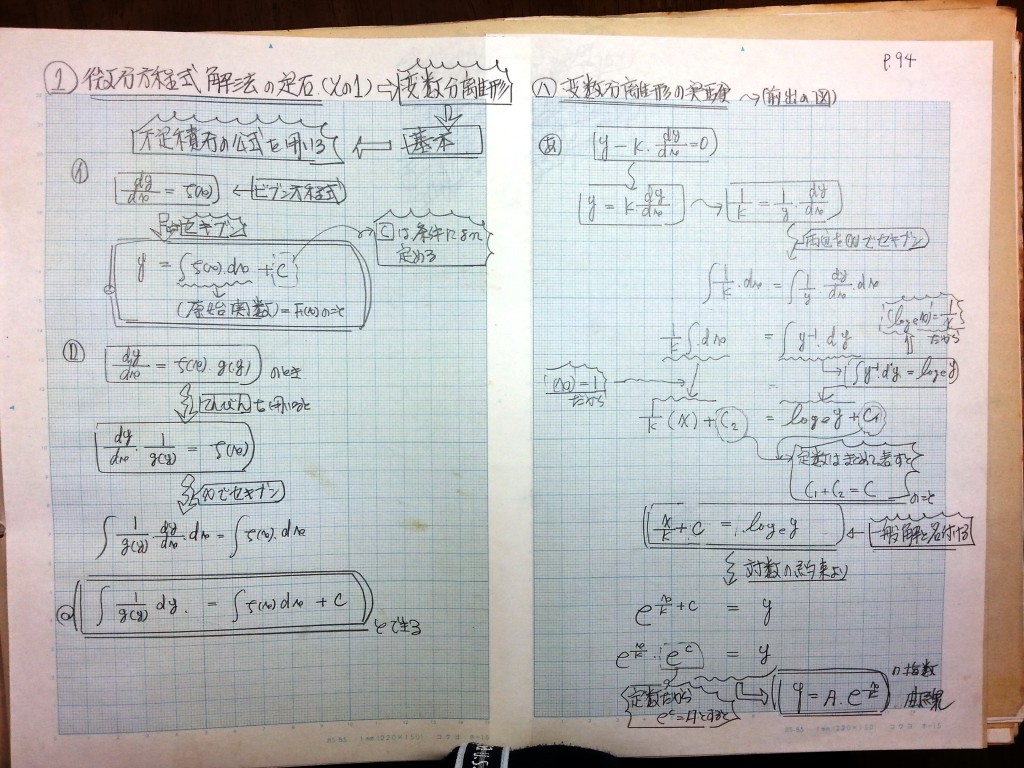 微分方程式 解法の定石(その1)⇒変数分離形
不定積分の公式を用いる ⇐ 基本
dy/dx = f(x) ← ビブン方程式
両辺セキブン
Cは条件によって
定める
y = ∫f(x)・dx + C
(原始関数) = F(x)のこと
dy/dx = f(x)・g(y) のとき
てんびん を用いると
dy/dx・1/g(y) = f(x)
xでセキブン
∫1/g(y)・dy/dx・dx = ∫f(x)・dx
∫1/g(y) dy = ∫f(x)dx + C
とできる
P.94
ハ 変数分離形の実践 → (前出の図)
あ y - k・dy/dx = 0
y = k・dy/dx
1/k = 1/y・dy/dx
両辺をxでセキブン
∫1/k・dx = ∫1/y・dy/dx・dx
(loge x)' = 1/x
だから
1/k∫・dx = ∫y⁻¹・dy
∫y⁻¹・dy = loge y
(x)' = 1
だから
1/k(x) + C2 = loge y + C1
定数はまとめて表すと
C1 + C2 = C のこと
x/k + C = loge y ← 一般解と名付ける
対数の約束より
e^(x/k + C) = y
e^(x/k)・e^C = y
定数だから
e^C = Aとすると
y = A・e^(x/k)
指数
曲線